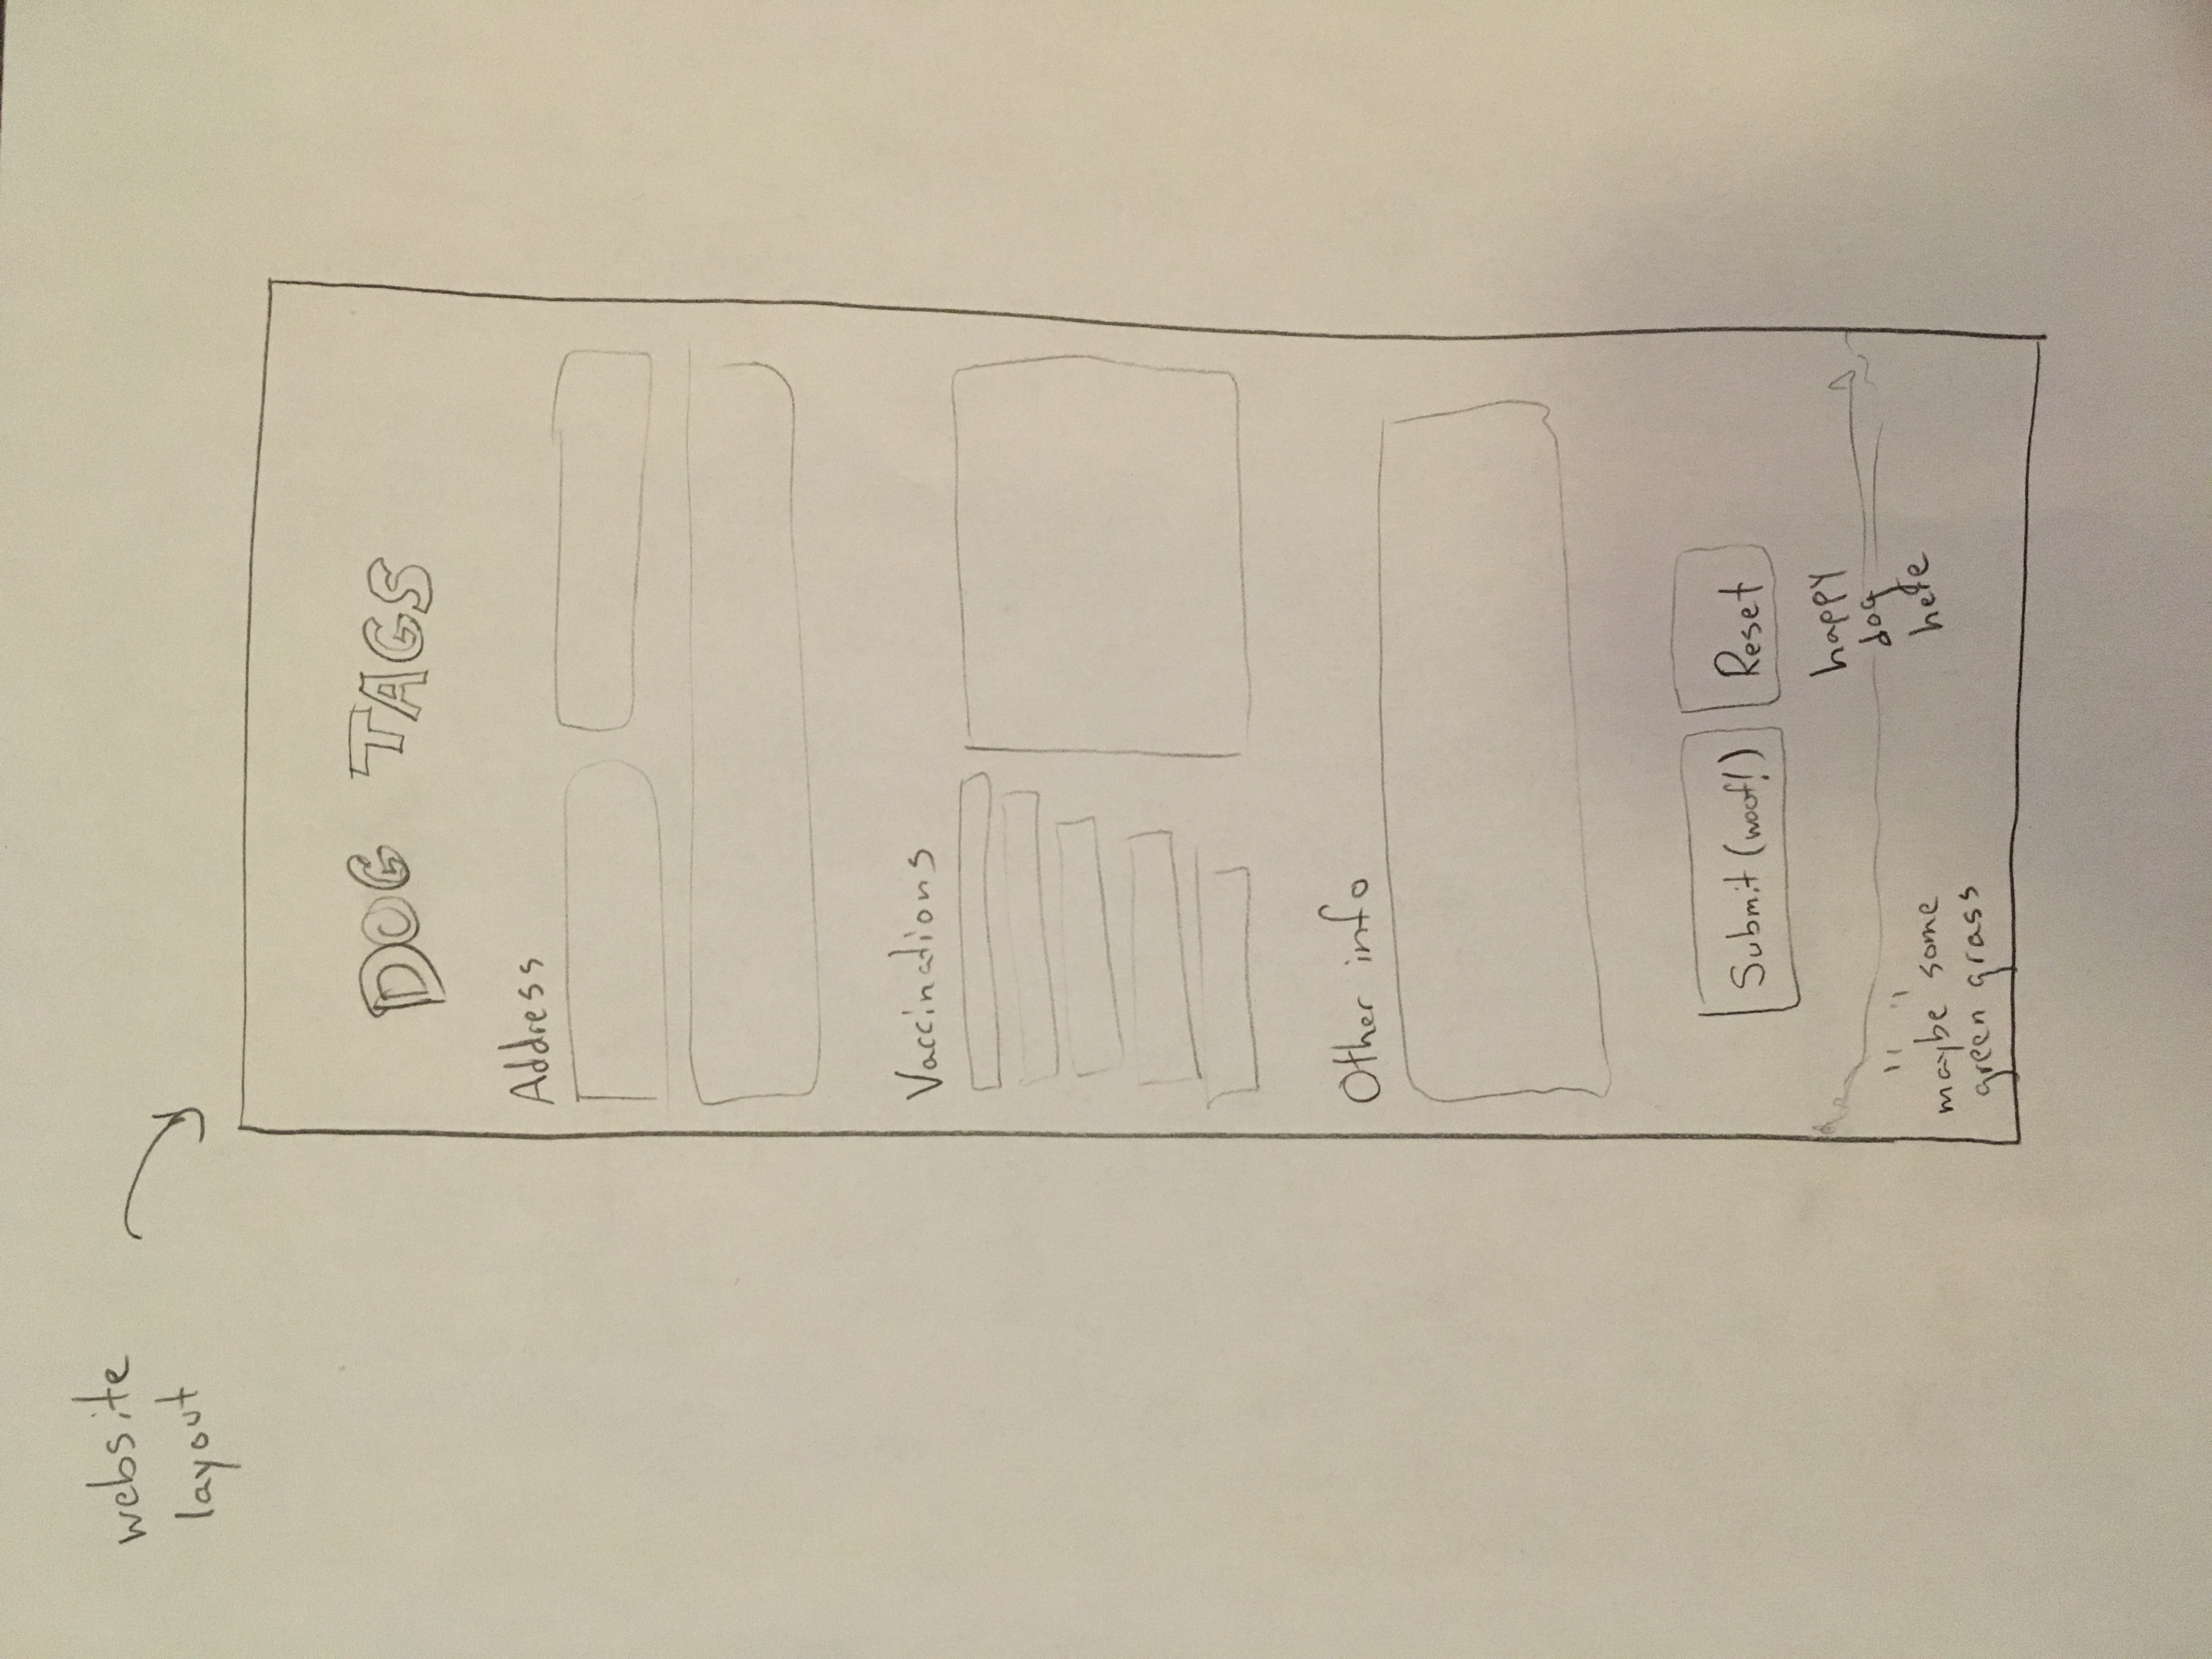 website
layout
DOG TAGS
Address
Vaccinations
Other info
Submit (woof!)
Reset
happy
dog
here
maybe some
green grass